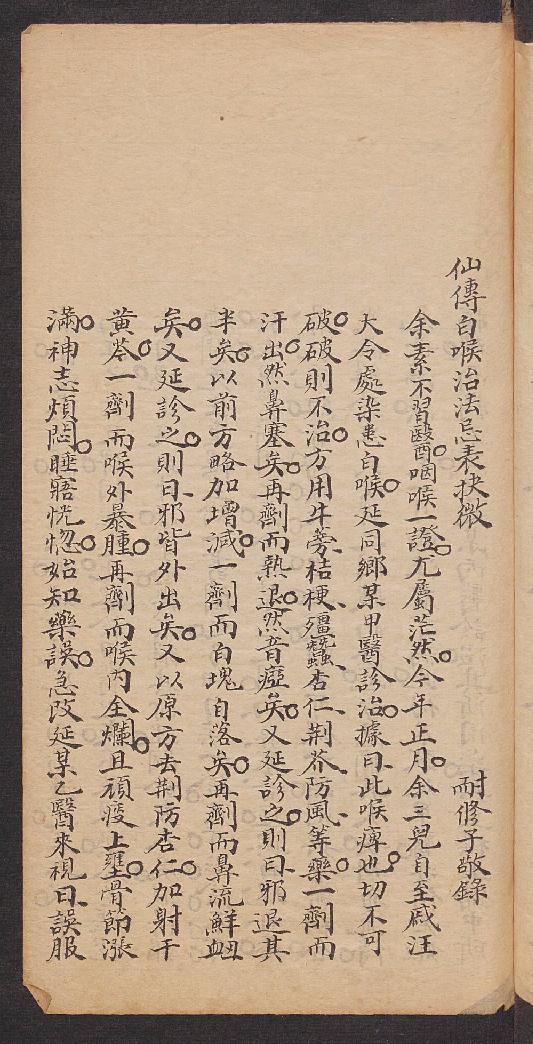 仙傳白喉治法忌表抉微
耐修子敬錄
余素不習醫。咽喉一證。尤屬茫然。今年正月。余三兒自至戚汪
大令處染患白喉。延同鄉某甲醫診治。據曰此喉痺也。切不可
破。破則不治。方用牛蒡、桔梗、殭蠶、杏仁、荆芥、防風、等藥。一劑而
汗出。然鼻塞矣。再劑而熱退。然音瘂矣。又延診之。則曰、邪退其
半矣。以前方略加增減。一劑而白塊自落矣。再劑而鼻流鮮衄
矣。又延診之。則曰、邪皆外出矣。又以原方去荆防杏仁。加射干
黄芩。一劑而喉外暴腫。再劑而喉内全爛。且頑痰上壅。骨節漲
滿。神志煩悶。睡寤恍惚。始知藥誤。急改延某乙醫來視。曰、誤服